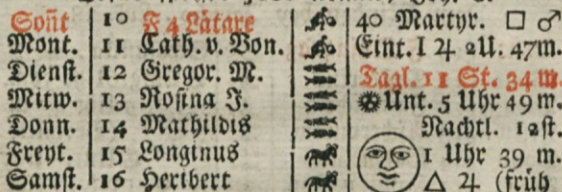 Soñt 10 F 4 Lätare 40 Martyr. □ ♂
Mont. 11 Cath. v. Bon. Eint. I ♃ 2U. 47m.
Dienst. 12 Gregor. M. Tagl. 11 St. 34 m.
Mitw. 13 Rosina J. Unt. 5 Uhr 49 m.
Donn. 14 Mathildis Nachtl. 12st.
Freyt. 15 Longinus 1 Uhr 39 m.
Samst. 16 Heribert △ ♃ (früh